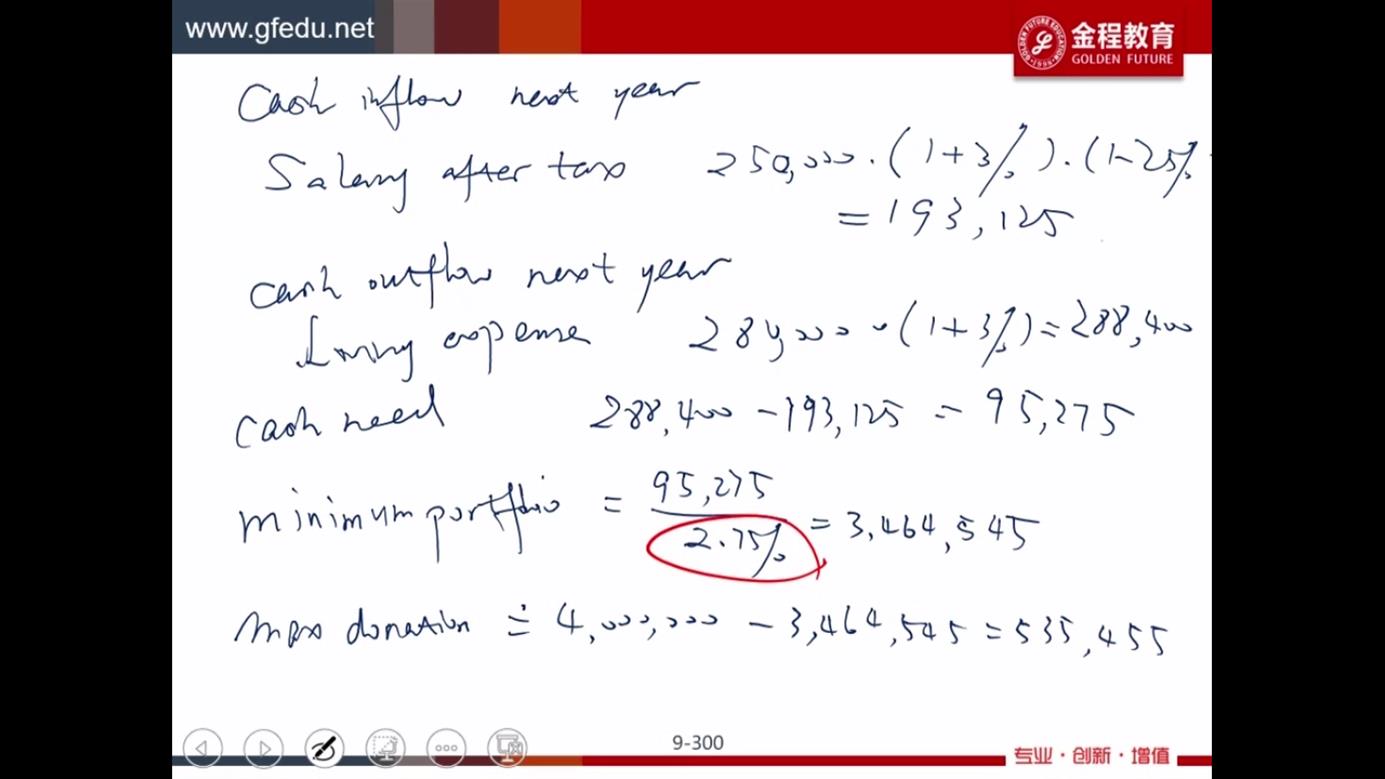 www.gfedu.net
金程教育
GOLDEN FUTURE
Cash inflow next year
Salary after tax 250,000·(1+3%)·(1-25%
=193,125
Cash outflow next year
Living expense 280,000·(1+3%)=288,400
Cash need 288,400-193,125=95,275
minimum portfolio = 95,275
2.75%
=3,464,545
max donation = 4,000,000-3,464,545=535,455
9-300
专业·创新·增值